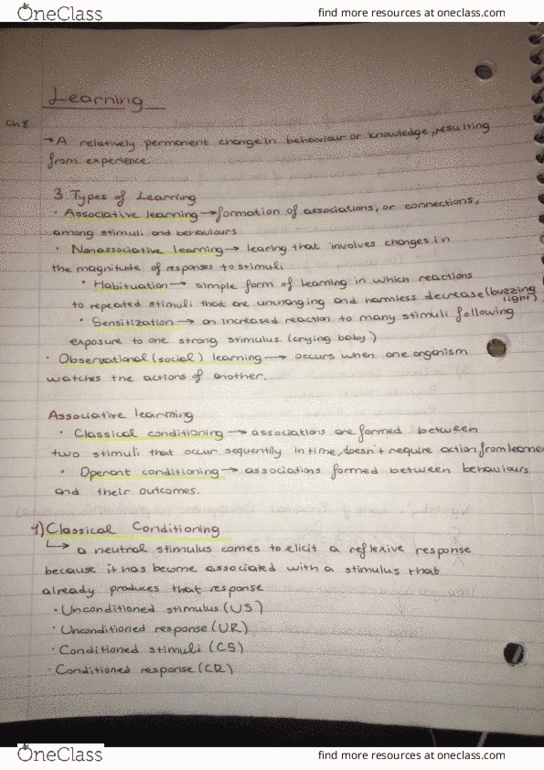 OneClass find more resources at oneclass.com
Learning
Ch 8
→ A relatively permanent change in behaviour or knowledge, resulting
from experience
3 Types of Learning
· Associative learning → formation of associations, or connections,
among stimuli and behaviours
· Nonassociative learning → learing that involves changes in
the magnitude of responses to stimuli
· Habituation → simple form of learning in which reactions
to repeated stimuli that are unchanging and harmless decrease (buzzing
light)
· Sensitization → an increased reaction to many stimuli following
exposure to one strong stimulus (crying baby)
· Observational (social) learning → occurs when one organism
watches the actions of another.
Associative learning
· Classical conditioning → associations are formed between
two stimuli that occur sequently in time, doesn't require action from learner
· Operant conditioning → associations formed between behaviours
and their outcomes.
1) Classical Conditioning
↳ a neutral stimulus comes to elicit a reflexive response
because it has become associated with a stimulus that
already produces that response
· Unconditioned stimulus (US)
· Unconditioned response (UR)
· Conditioned stimuli (CS)
· Conditioned response (CR)
OneClass find more resources at oneclass.com